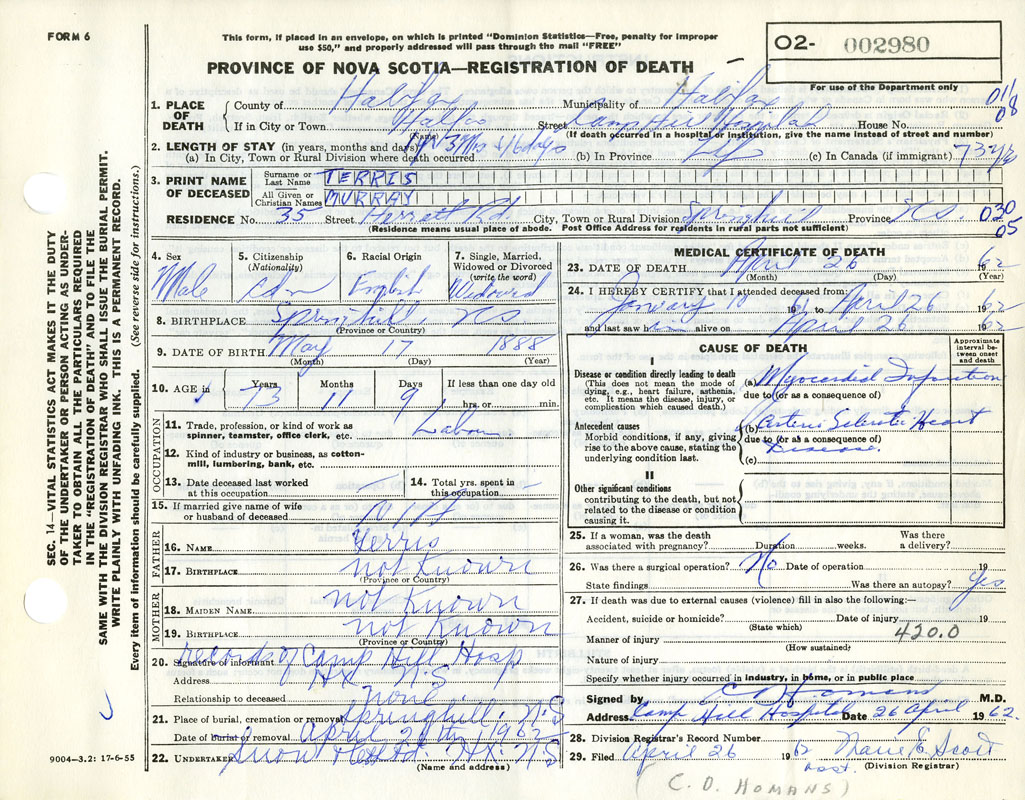 FORM 6
This form, if placed in an envelope, on which is printed "Dominion Statistics—Free, penalty for improper
use $50," and properly addressed will pass through the mail "FREE"
O2- 002980
PROVINCE OF NOVA SCOTIA—REGISTRATION OF DEATH
For use of the Department only
011
08
1. PLACE OF DEATH
County of Halifax Municipality of Halifax
If in City or Town Halifax Street Camp Hill Hospital House No.
(Name) (If death occurred in a hospital or institution, give the name instead of street and number)
2. LENGTH OF STAY (in years, months and days)
(a) In City, Town or Rural Division where death occurred 3 Mos 16 days (b) In Province Life (c) In Canada (if immigrant) 73 yrs
3. PRINT NAME OF DECEASED
Surname or Last Name TERRIS
All Given or Christian Names MURRAY
RESIDENCE No. 35 Street Herrett Rd. City, Town or Rural Division Springhill Province N.S. 030
05
(Residence means usual place of abode. Post Office Address for residents in rural parts not sufficient)
4. Sex Male
5. Citizenship (Nationality) Cdn
6. Racial Origin English
7. Single, Married, Widowed or Divorced (write the word) Widowed
8. BIRTHPLACE Springhill, NS
(Province or Country)
9. DATE OF BIRTH May 17 1888
(Month) (Day) (Year)
10. AGE in Years 73 Months 11 Days 9 If less than one day old
hrs. or min.
OCCUPATION
11. Trade, profession, or kind of work as spinner, teamster, office clerk, etc. Labour
12. Kind of industry or business, as cotton-mill, lumbering, bank, etc.
13. Date deceased last worked at this occupation
14. Total yrs. spent in this occupation
15. If married give name of wife or husband of deceased
FATHER
16. NAME Terris
17. BIRTHPLACE not Known
(Province or Country)
MOTHER
18. MAIDEN NAME not Known
19. BIRTHPLACE not Known
(Province or Country)
20. Signature of informant records of Camp Hill Hosp
Address Hx N.S
Relationship to deceased none
21. Place of burial, cremation or removal Springhill, N.S
Date of burial or removal april 28th, 1962
22. UNDERTAKER Snow Hx. N.S
(Name and address)
MEDICAL CERTIFICATE OF DEATH
23. DATE OF DEATH April 26 1962
(Month) (Day) (Year)
24. I HEREBY CERTIFY that I attended deceased from:
January 10 to April 26 1962
and last saw him alive on April 26 1962
CAUSE OF DEATH
Approximate interval between onset and death
I
Disease or condition directly leading to death
(This does not mean the mode of dying, e.g., heart failure, asthenia, etc. It means the disease, injury, or complication which caused death.)
(a) Myocardial Infarction
due to (or as a consequence of)
Antecedent causes
Morbid conditions, if any, giving rise to the above cause, stating the underlying condition last.
(b) Arterio Sclerotic Heart
due to (or as a consequence of)
Disease.
(c)
II
Other significant conditions
contributing to the death, but not related to the disease or condition causing it.
25. If a woman, was the death associated with pregnancy? Duration weeks. Was there a delivery?
26. Was there a surgical operation? No Date of operation 19
State findings Was there an autopsy? Yes
27. If death was due to external causes (violence) fill in also the following:—
Accident, suicide or homicide? Date of injury 19
(State which)
420.0
Manner of injury
(How sustained)
Nature of injury
Specify whether injury occurred in industry, in home, or in public place
Signed by C D Homans M.D.
Address Camp Hill Hospital Date 26 April 1962.
28. Division Registrar's Record Number
29. Filed April 26 1962 Marie E. Scott
asst. (Division Registrar)
(C. D. HOMANS)
SEC. 14—VITAL STATISTICS ACT MAKES IT THE DUTY
OF THE UNDERTAKER OR PERSON ACTING AS UNDER-
TAKER TO OBTAIN ALL THE PARTICULARS REQUIRED
IN THE "REGISTRATION OF DEATH" AND TO FILE THE
SAME WITH THE DIVISION REGISTRAR WHO SHALL ISSUE THE BURIAL PERMIT.
WRITE PLAINLY WITH UNFADING INK. THIS IS A PERMANENT RECORD.
Every item of information should be carefully supplied. (See reverse side for instructions.)
9004—3.2: 17-6-55